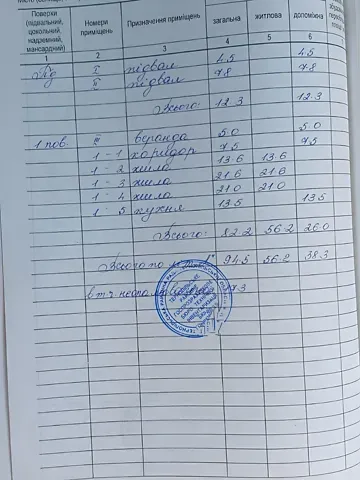 Поверхи (підвальний, цокольний, надземний, мансардний) Номери приміщень Призначення приміщень загальна житлова допоміжна
1 2 3 4 5 6
Пд І підвал 4.5 4.5
ІІ підвал 7.8 7.8
Всього: 12.3 12.3
1 пов. ІІІ веранда 5.0 5.0
1 - 1 коридор 7.5 7.5
1 - 2 жила 13.6 13.6
1 - 3 жила 21.6 21.6
1 - 4 жила 21.0 21.0
1 - 5 кухня 13.5 13.5
Всього: 82.2 56.2 26.0
Всього по 94.5 56.2 38.3
в т.ч.